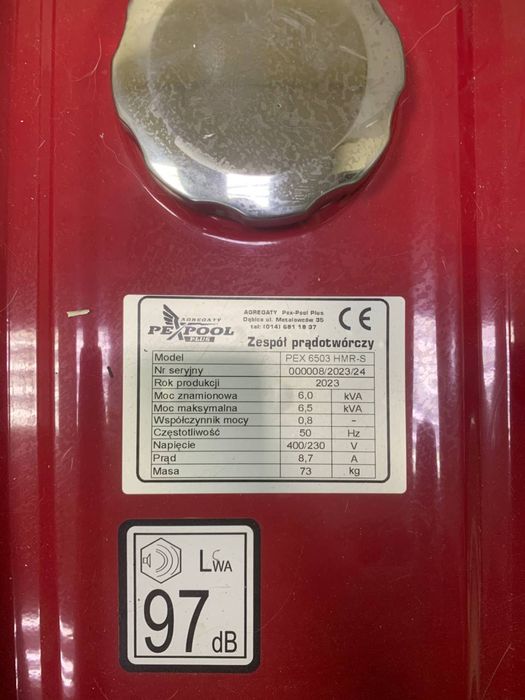 AGREGATY
PEXPOOL
PLUS
AGREGATY Pex-Pool Plus
Dębica ul. Metalowców 35
tel: (014) 681 18 37
CE
Zespół prądotwórczy
Model PEX 6503 HMR-S
Nr seryjny 000008/2023/24
Rok produkcji 2023
Moc znamionowa 6,0 kVA
Moc maksymalna 6,5 kVA
Współczynnik mocy 0,8 –
Częstotliwość 50 Hz
Napięcie 400/230 V
Prąd 8,7 A
Masa 73 kg
LWA
97 dB